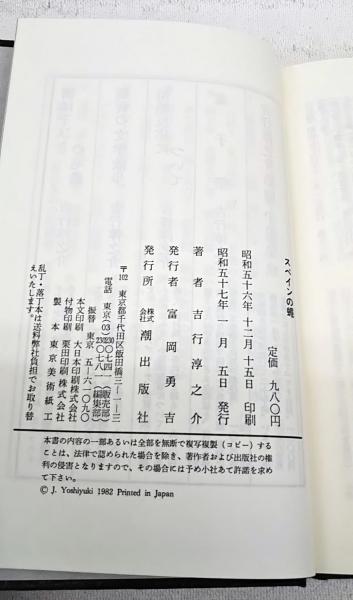 スペインの蠅
定価　九八〇円
昭和五十六年十二月十五日　印刷
昭和五十七年一月五日　発行
著者　吉行淳之介
発行者　富岡勇吉
発行所　株式会社　潮出版社
〒102　東京都千代田区飯田橋三―一―三
電話　東京(03)
（販売部）
（編集部）
振替　東京　五―六一〇九〇
本文印刷　大日本印刷株式会社
付物印刷　栗田印刷株式会社
製本　東京美術紙工
乱丁・落丁本は送料弊社負担でお取り替
えいたします。
本書の内容の一部あるいは全部を無断で複写複製（コピー）する
ことは、法律で認められた場合を除き、著作者および出版社の権
利の侵害となりますので、その場合には予め小社あて許諾を求め
て下さい。
© J. Yoshiyuki 1982 Printed in Japan